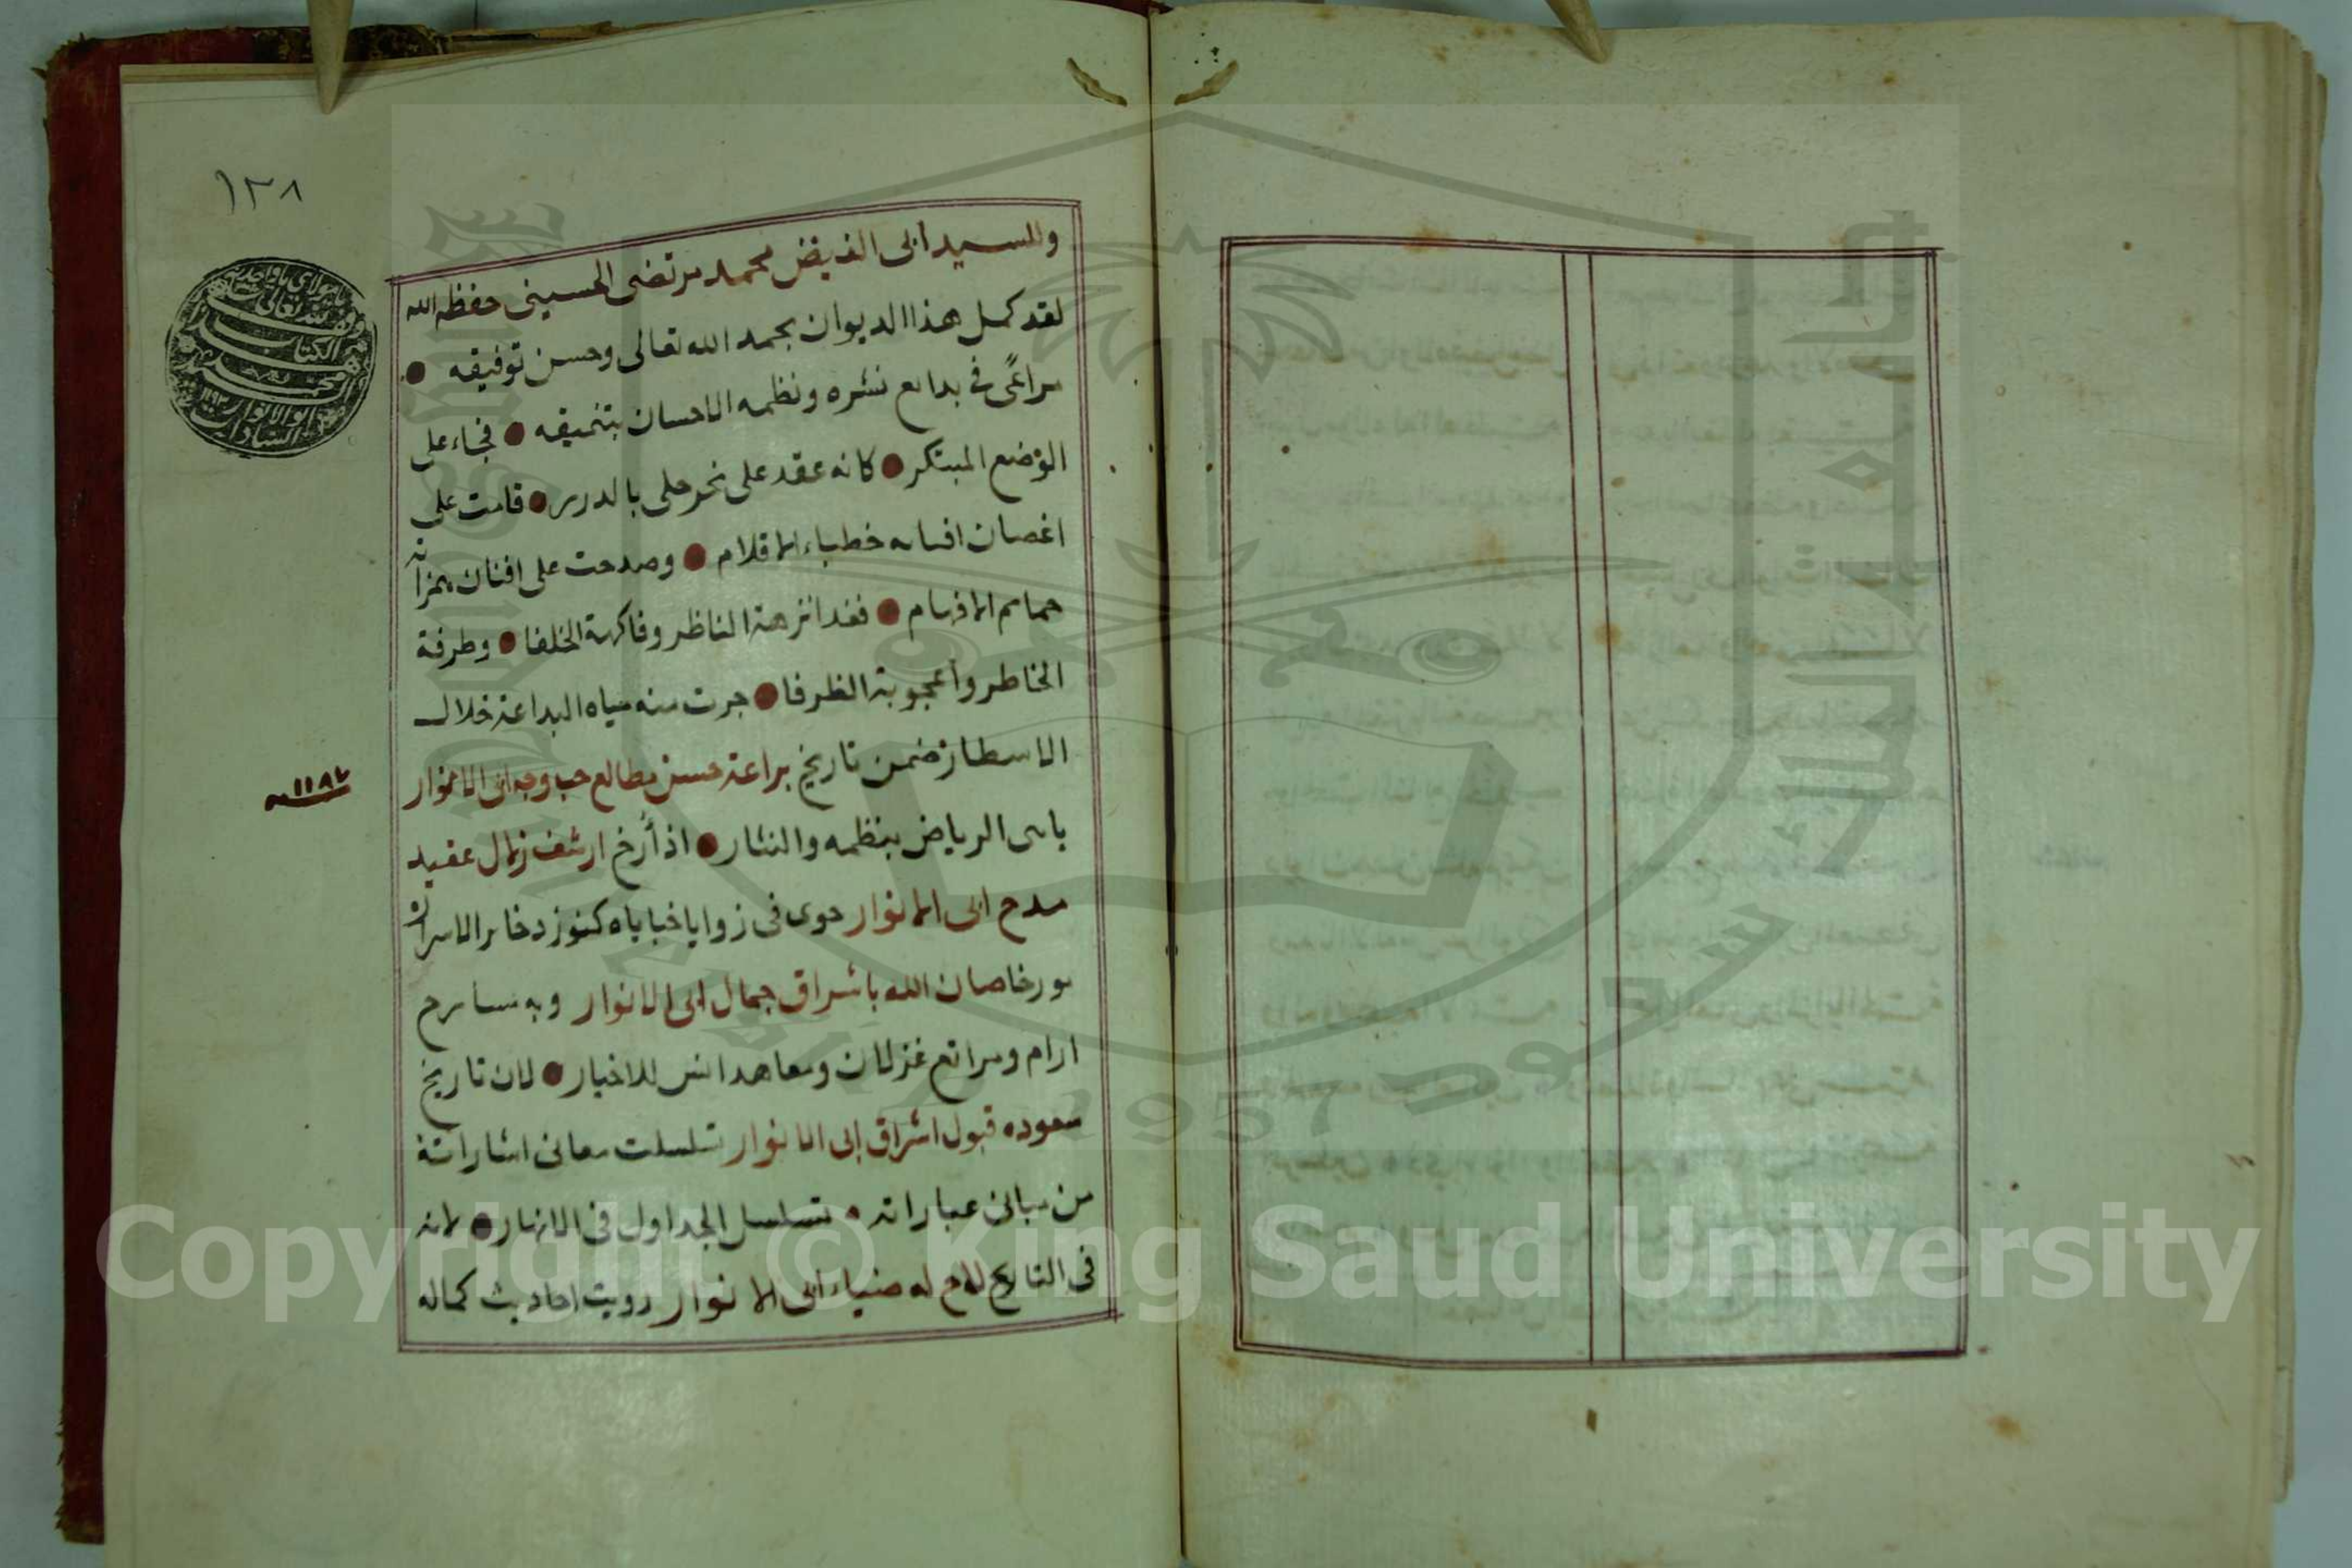 ١٣٨
وللسيد ابى الفيض محمد مرتضى الحسينى حفظه الله
لقد كمل هذا الديوان بحمد الله تعالى وحسن توفيقه
مراعًى فى بدايع نثره ونظمه الاحسان بتنميقه فجاء على
الوضع المبتكر كانه عقد على نحر حلى بالدرر قامت على
اغصان افنانه خطباء الاقلام وصدحت على افنان
حمايم الافهام فغدا نزهة الناظر وفاكهة الخلفا وطرفة
الخاطر واعجوبة الظرفا جرت منه مياه البداعة خلال
الاسطار ضمن تاريخ براعة حسن مطالع حب وجه ابى الانوار
١١٨٧
باهى الرياض بنظمه والنثار اذ أرخ ارشف زلال عقيد
مدح ابى الانوار حوى فى زوايا خباياه كنوز ذخاير الاسرار
صان الله باشراق جمال ابى الانوار وبه مسارح
ارام ومراتع غزلان ومعاهد انس للاخيار لان تاريخ
سعوده قبول اشراق ابى الانوار تسلسلت معانى اشاراته
من مبانى عباراته تسلسل الجداول فى الانهار لانه
فى التاريخ لاح له ضياء ابى الانوار رويت احاديث كماله
Copyright © King Saud University
1957